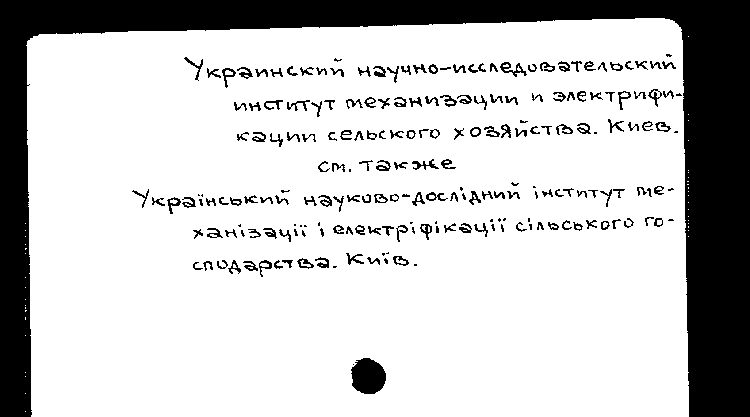 Украинский научно-исследовательский
институт механизации и электрифи-
кации сельского хозяйства. Киев.
см. также
Український науково-дослідний інститут ме-
ханізації і електріфікації сільського го-
сподарства. Київ.